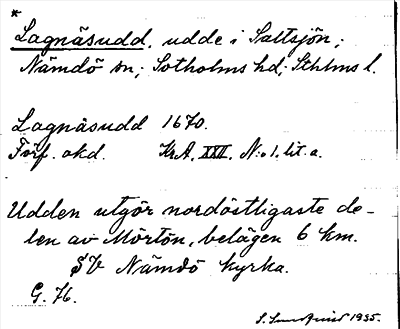 *
Lagnäsudd, udde i Saltsjön;
Nämdö sn; Sotholms hd; Sthlms l.
Lagnäsudd 1670.
Förf. okd. KrA. XXII. N:o 1. lit. a.
Udden utgör nordöstligaste de-
len av Mörtön, belägen 6 km.
SV Nämdö kyrka.
G. 76.
1935.